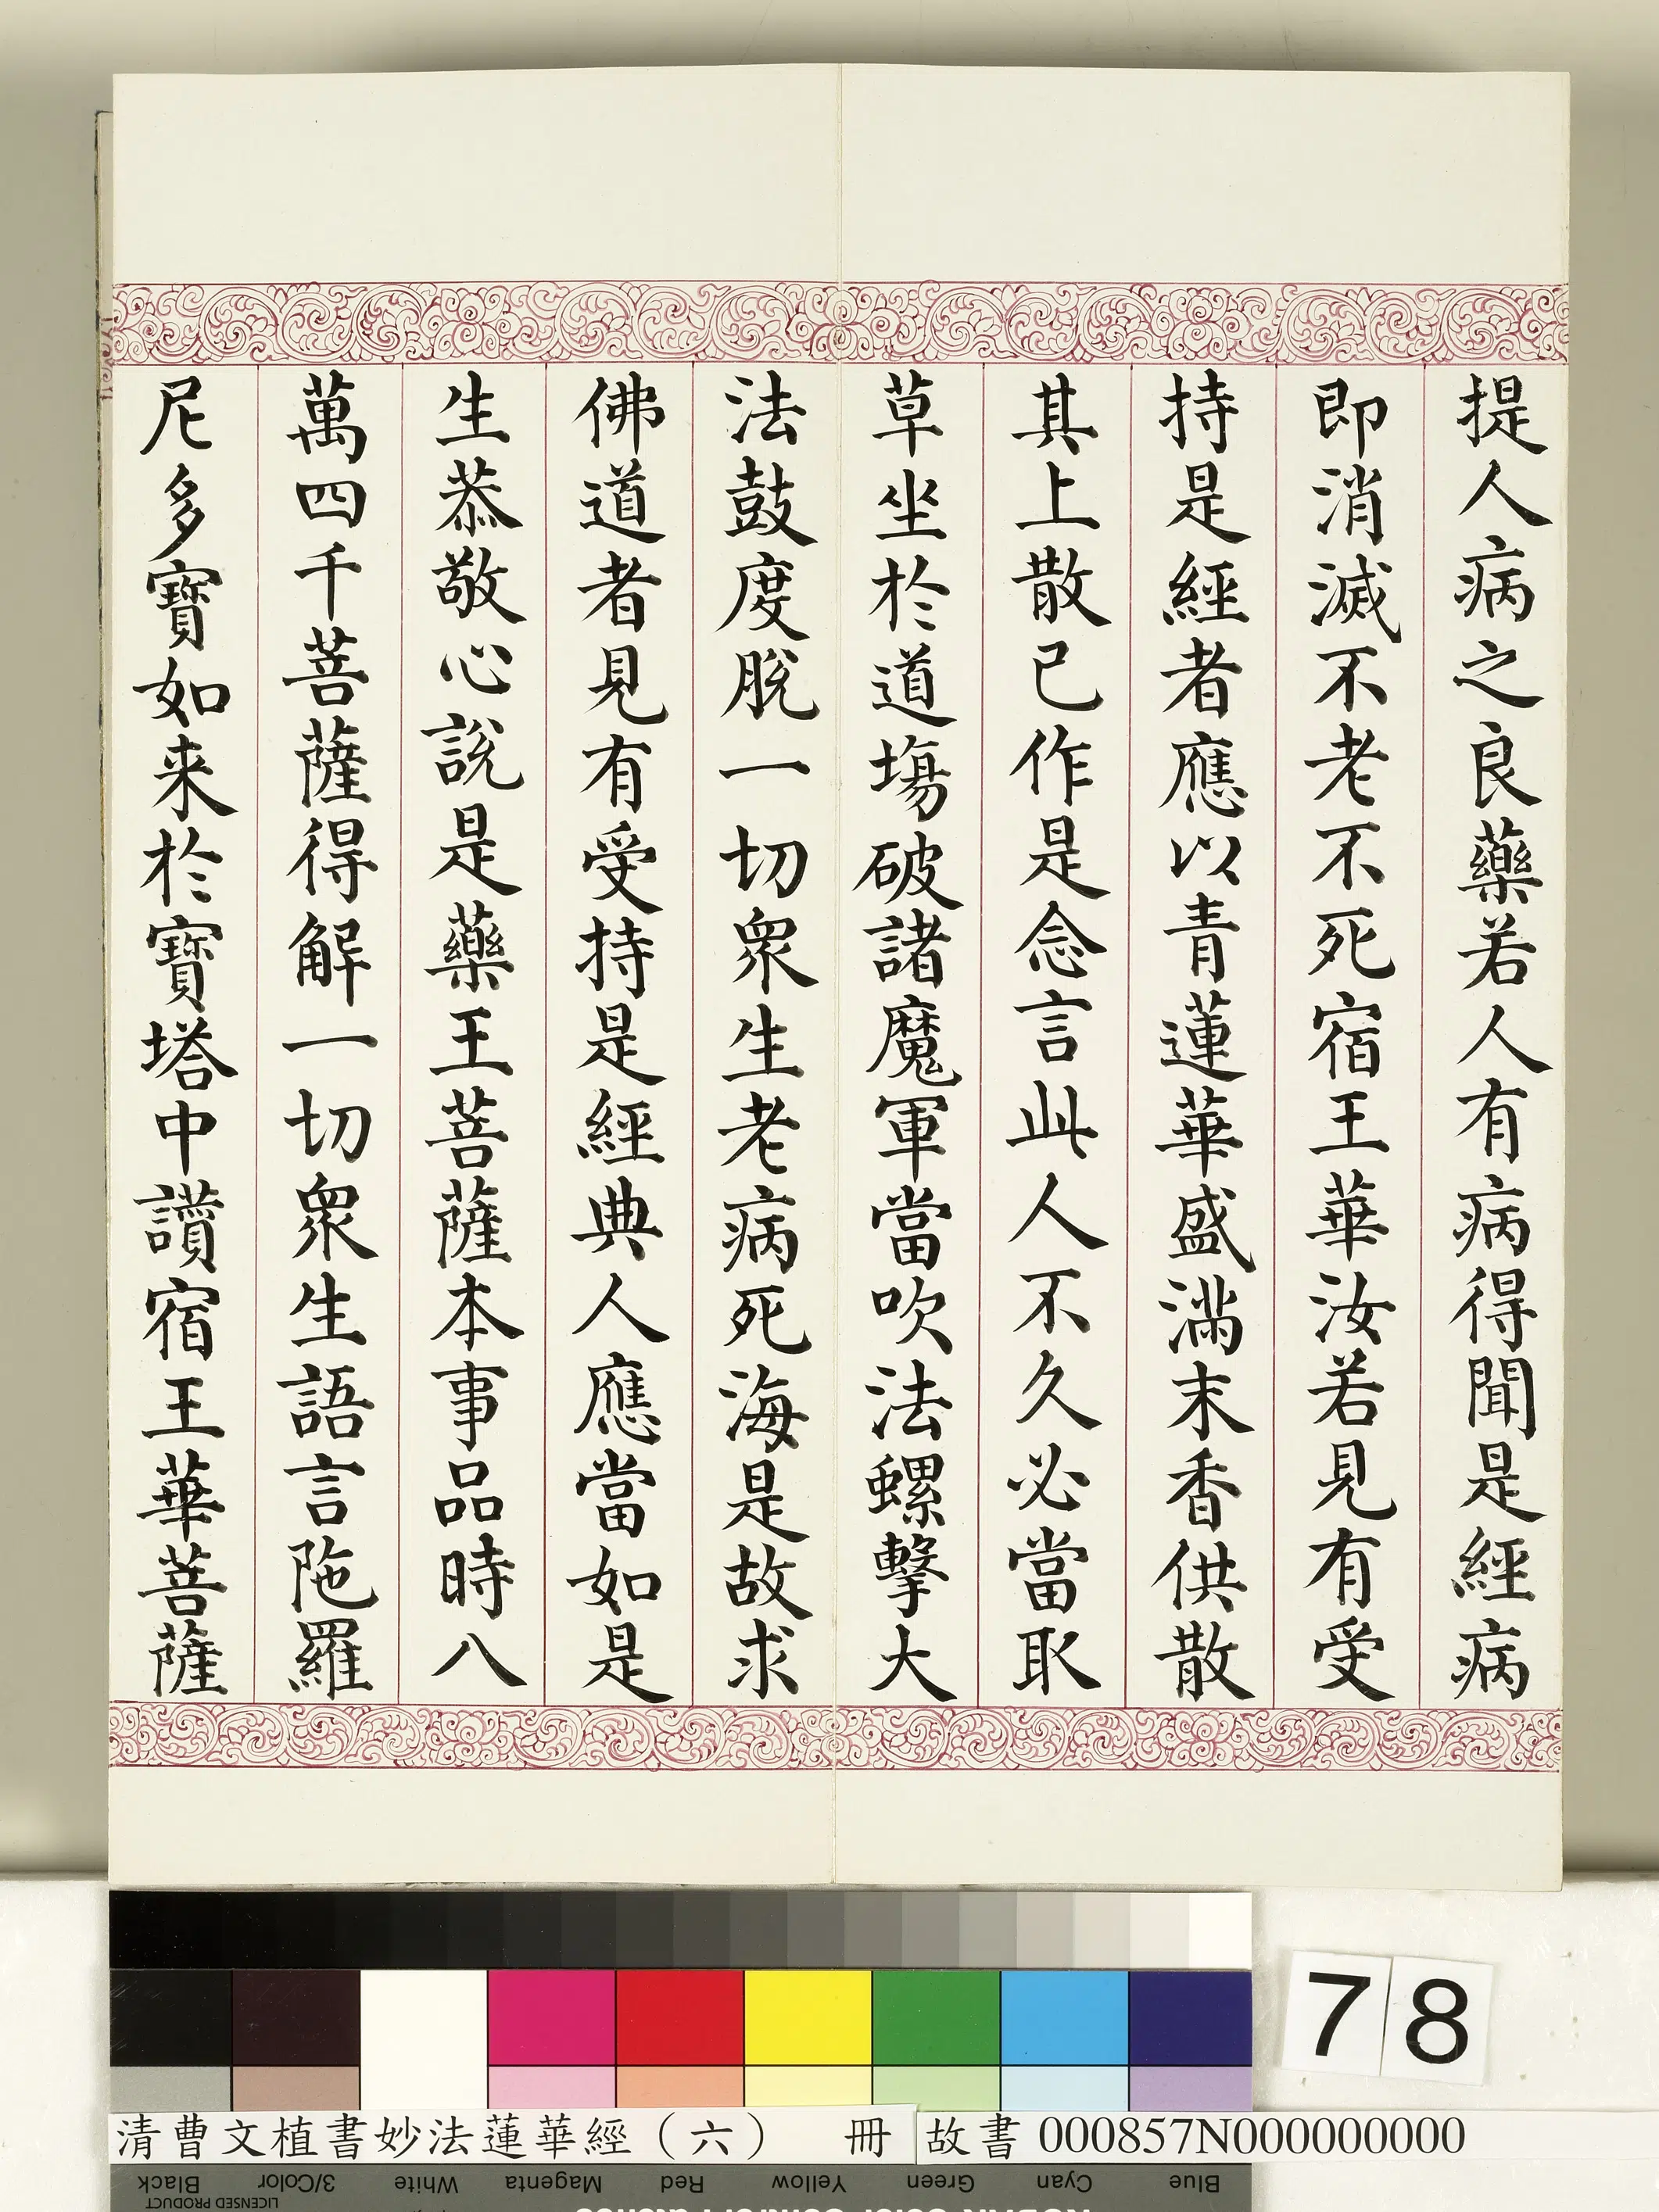 提人病之良藥若人有病得聞是經病
即消滅不老不死宿王華汝若見有受
持是經者應以青蓮華盛滿末香供散
其上散已作是念言此人不久必當取
草坐於道場破諸魔軍當吹法螺擊大
法鼓度脫一切眾生老病死海是故求
佛道者見有受持是經典人應當如是
生恭敬心說是藥王菩薩本事品時八
萬四千菩薩得解一切眾生語言陁羅
尼多寶如来於寶塔中讚宿王華菩薩
78
清曹文植書妙法蓮華經（六） 冊 故書 000857N000000000
Blue Cyan Green Yellow Red Magenta White 3/Color Black
LICENSED PRODUCT